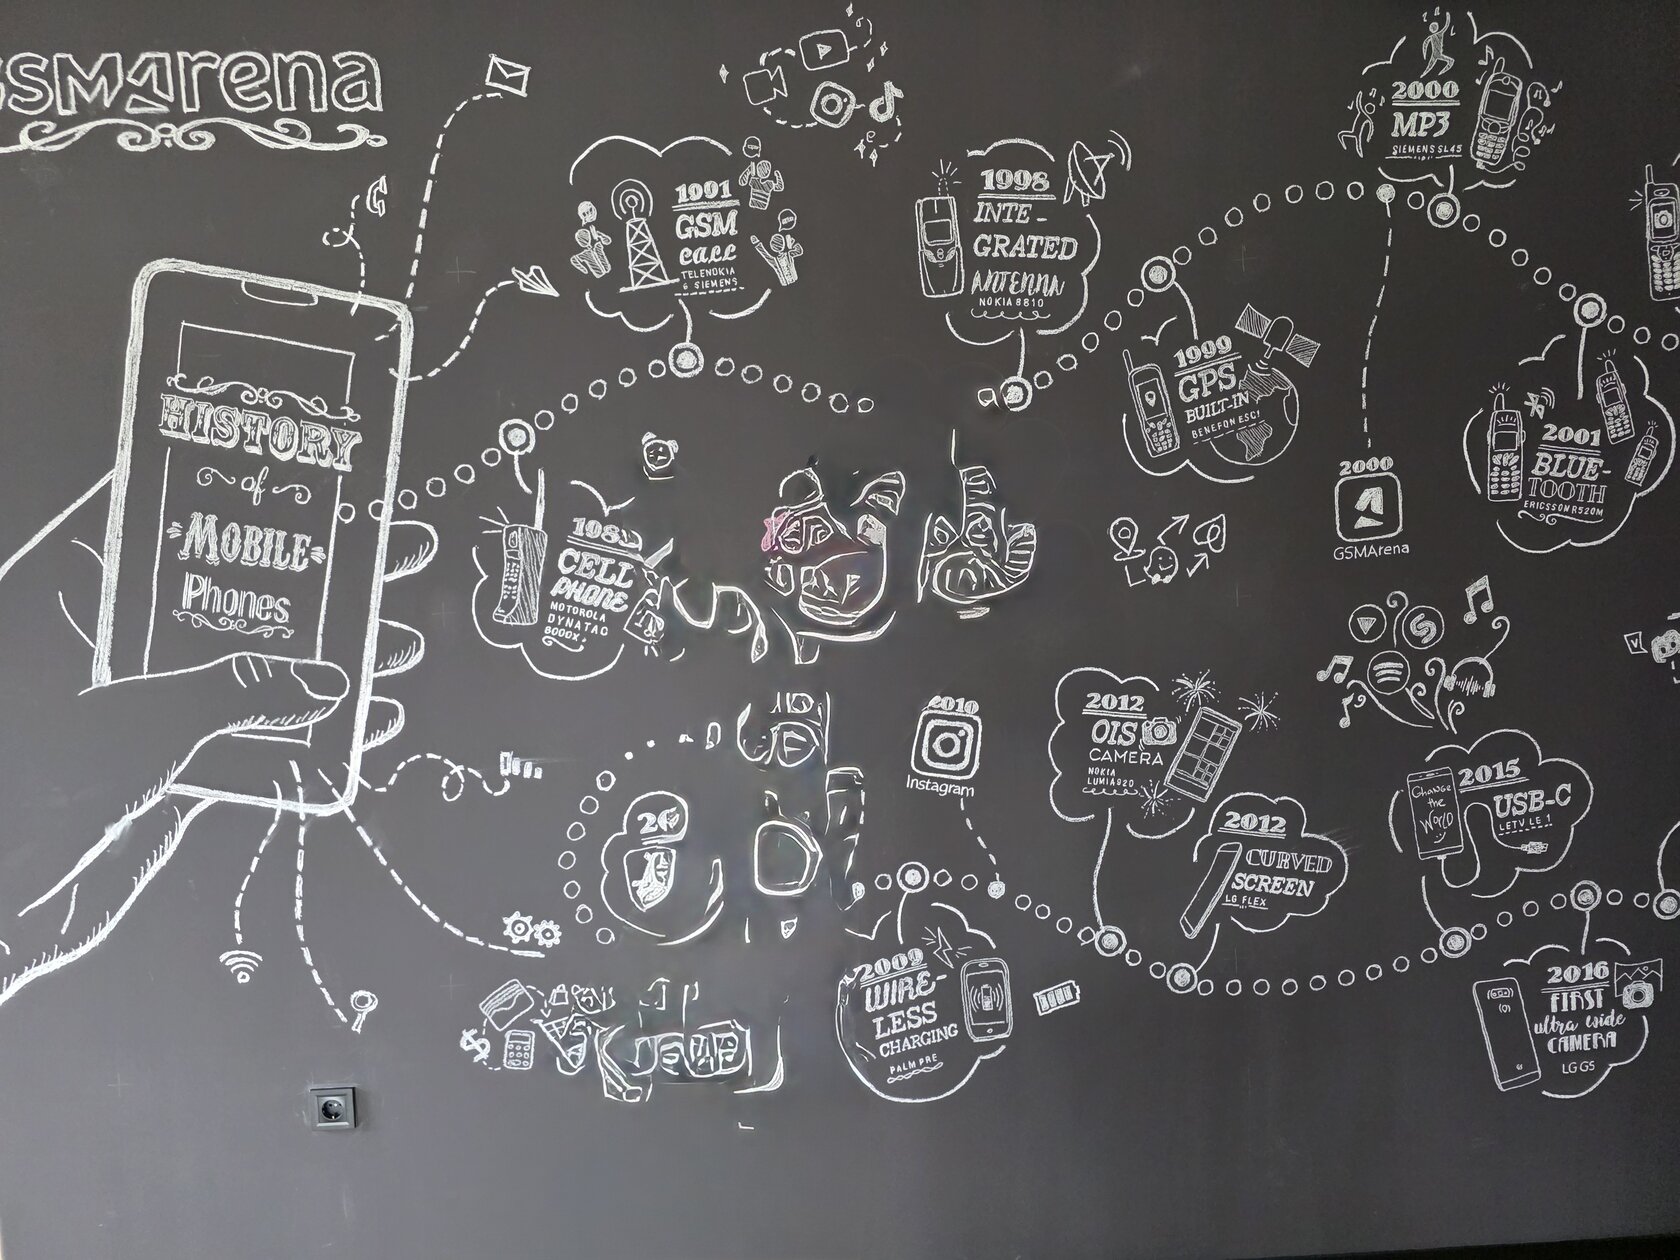 GSMArena
HISTORY
of
MOBILE
Phones
CELL
PHONE
MOTOROLA
DYNATAC
8000X
1991
GSM
CALL
TELENOKIA
& SIEMENS
1998
INTE-
GRATED
ANTENNA
NOKIA 8810
1999
GPS
BUILT-IN
BENEFON ESC!
2000
MP3
SIEMENS SL45
2000
GSMArena
2001
BLUE-
TOOTH
ERICSSON R520M
2009
WIRE-
LESS
CHARGING
PALM PRE
2010
Instagram
2012
OIS
CAMERA
NOKIA
LUMIA 920
2012
CURVED
SCREEN
LG FLEX
Change
the
World
2015
USB-C
LETV LE 1
2016
FIRST
ultra wide
CAMERA
LG G5